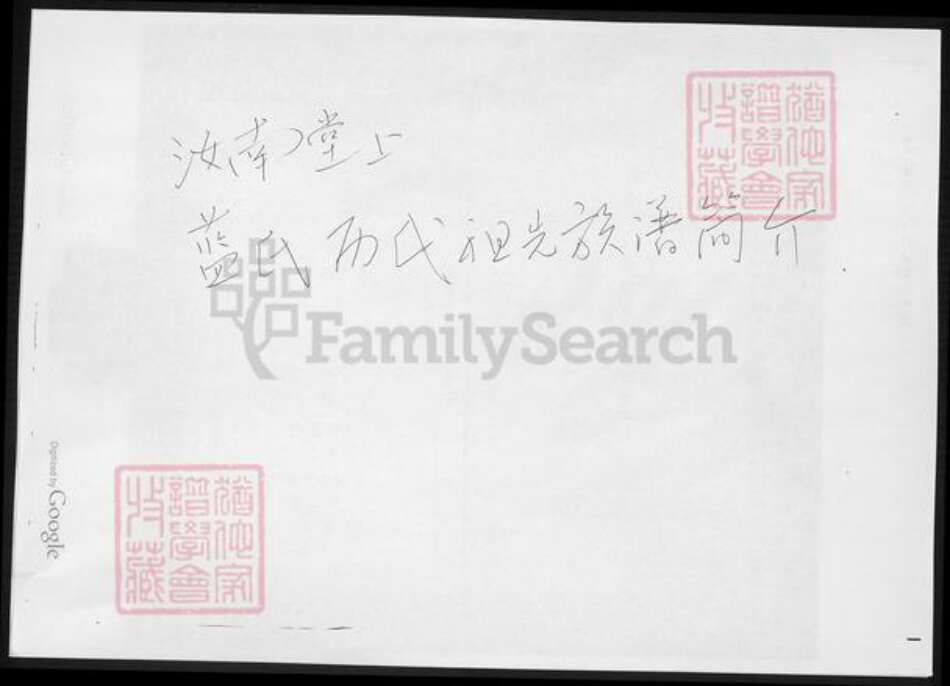 汝南堂上
蓝氏历代祖先族谱简介.
FamilySearch
Digitized by Google
猶他家
譜學會
收藏
猶他家
譜學會
收藏